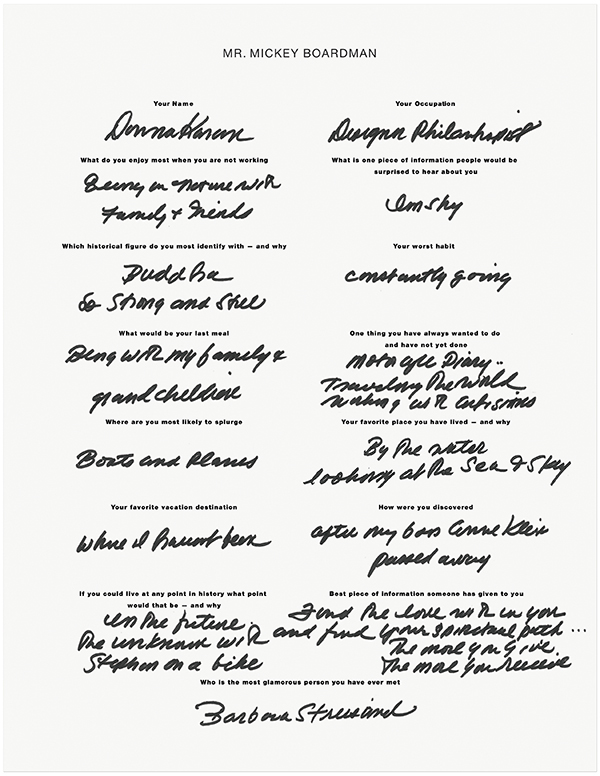 MR. MICKEY BOARDMAN
Your Name
Donna Karan
Your Occupation
Designer Philanthropist
What do you enjoy most when you are not working
Being in nature with
Family + Friends
What is one piece of information people would be
surprised to hear about you
Im Shy
Which historical figure do you most identify with — and why
Buddha
So Strong and Still
Your worst habit
constantly going
What would be your last meal
Being with my family &
grand children
One thing you have always wanted to do
and have not yet done
Motorcycle Diary..
Traveling the world
working with artisians
Where are you most likely to splurge
Boats and Planes
Your favorite place you have lived — and why
By the water
looking at the Sea & Sky
Your favorite vacation destination
where I havent been
How were you discovered
after my boss Anne Klein
passed away
If you could live at any point in history what point
would that be — and why
In the future.
The unknown with
Stephan on a bike
Best piece of information someone has given to you
Find the love with in you
and find your spiritual path ...
The more you Give.
The more you receive
Who is the most glamorous person you have ever met
Barbara Streisand